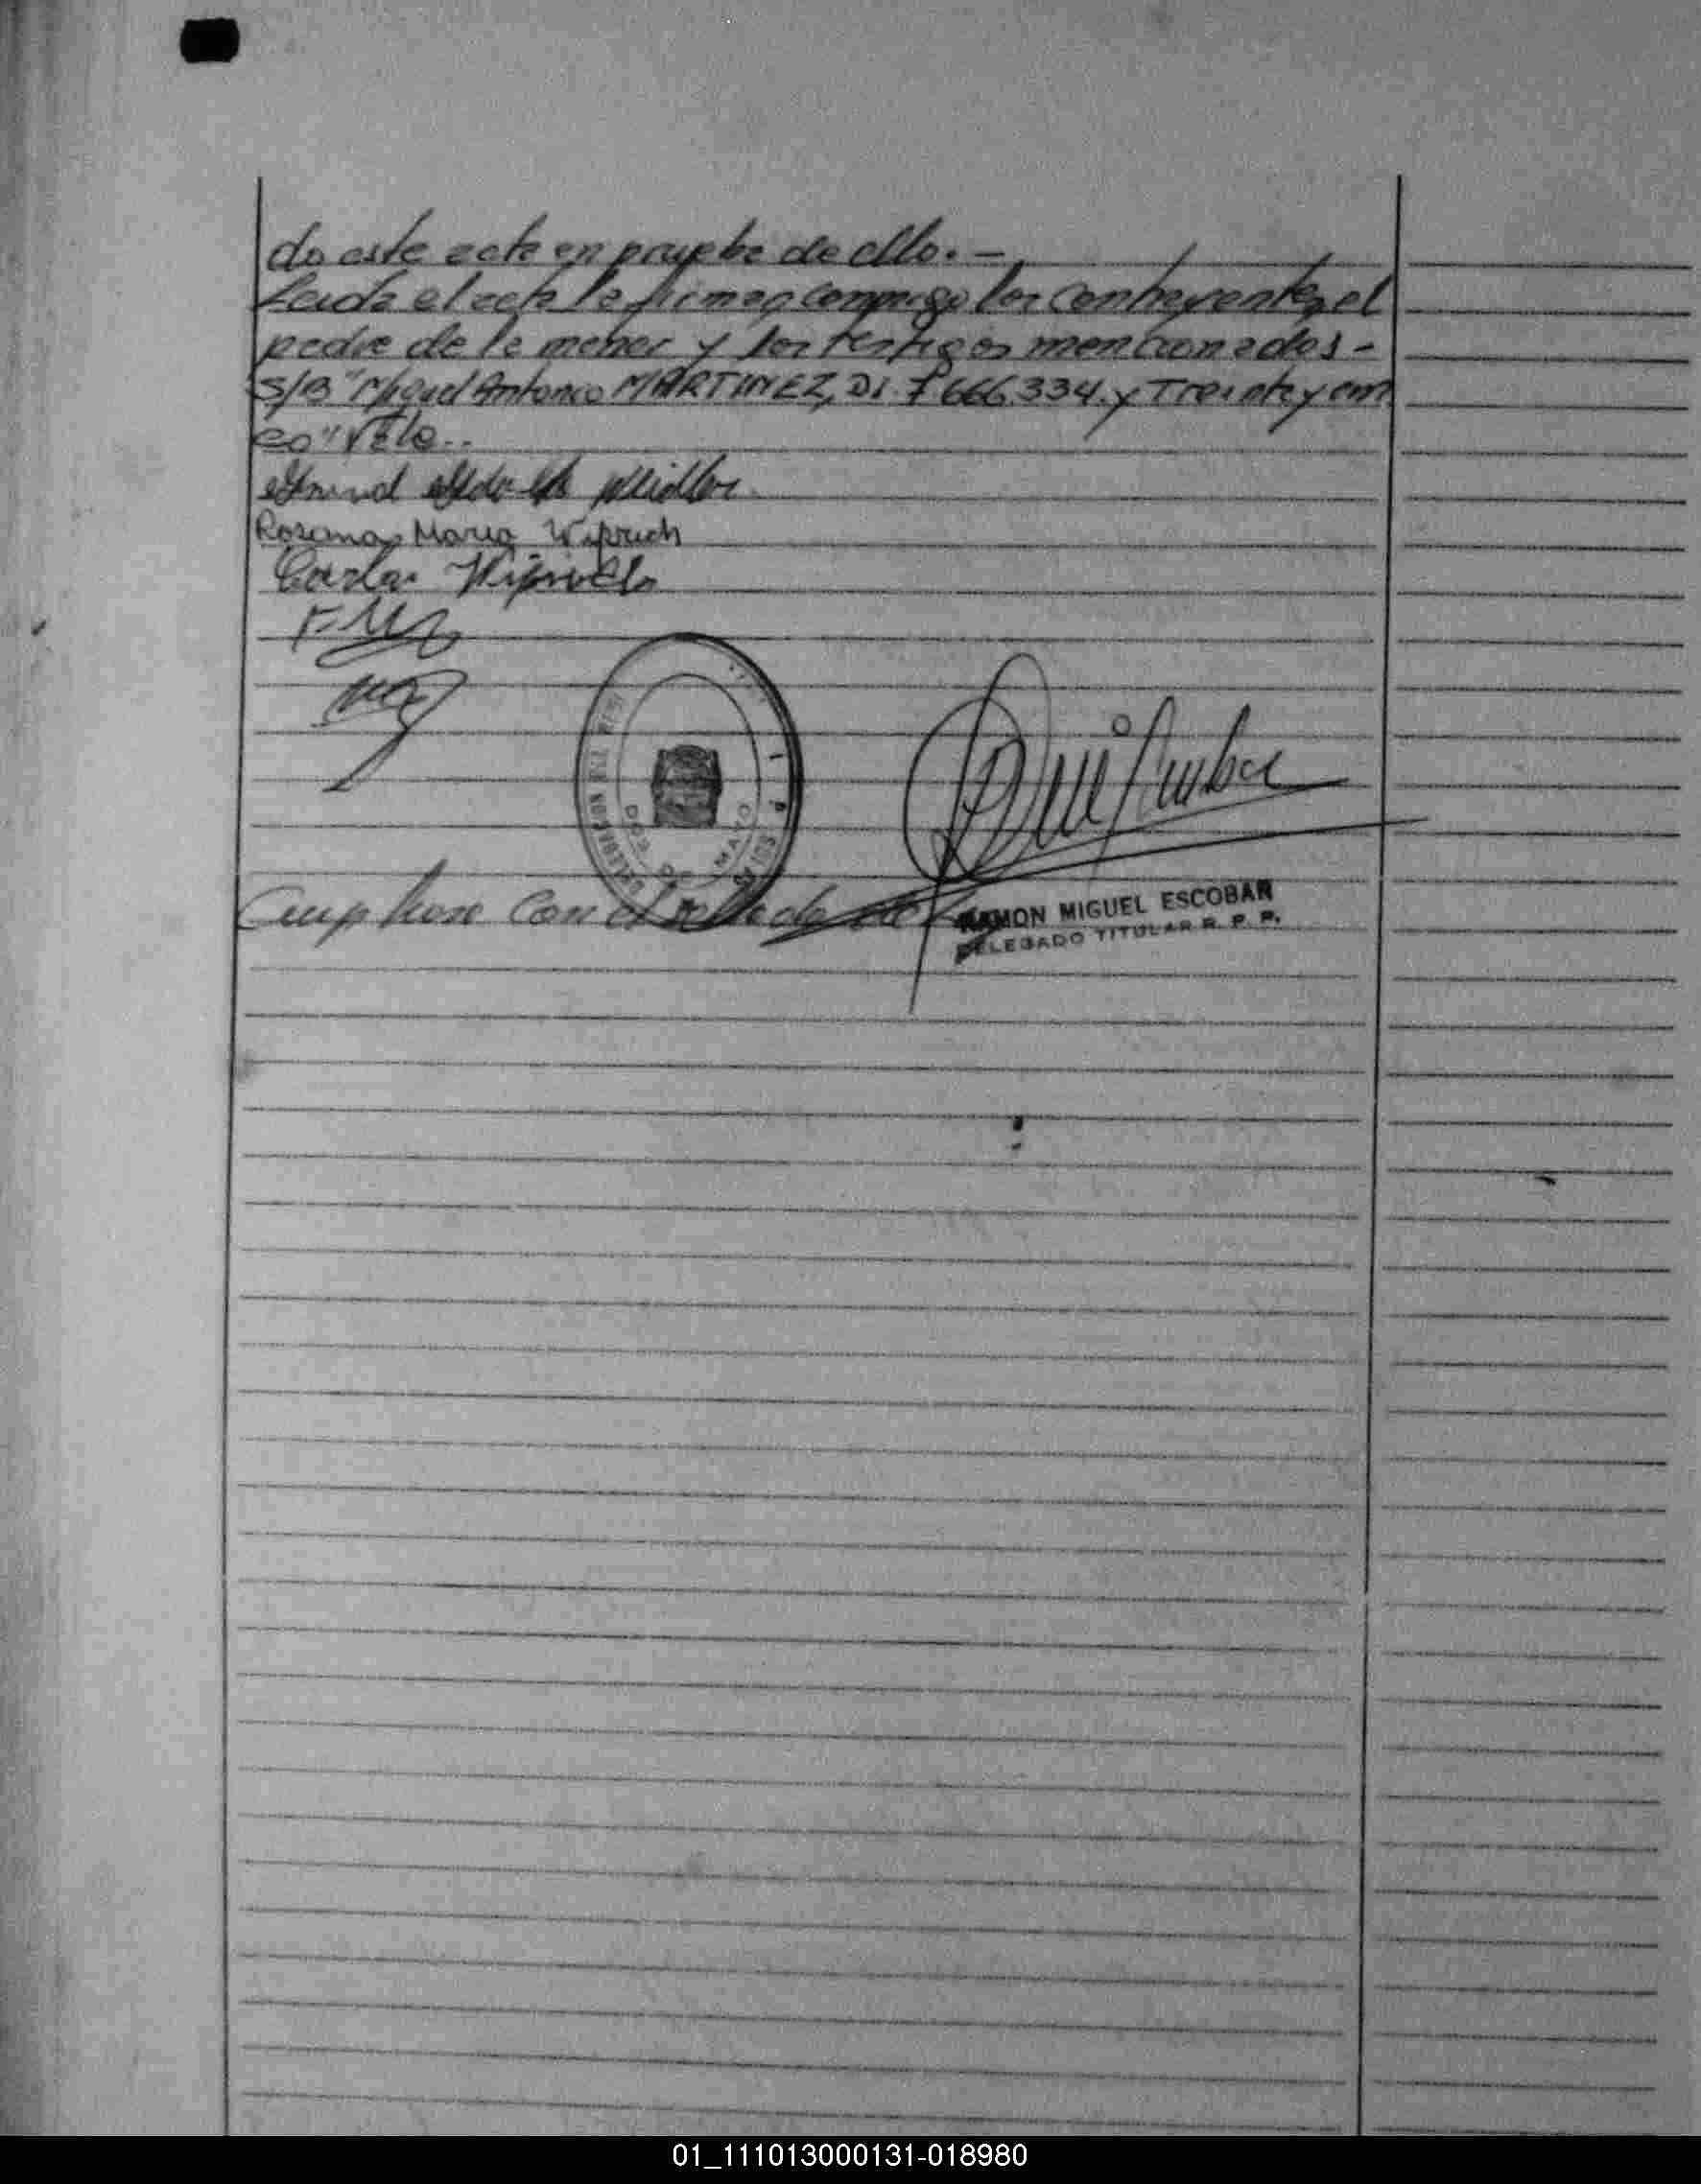 do este acta en prueba de ello.-
Leida el acta la firman conmigo los contrayentes, el
padre de la menor y los testigos mencionados-
S/B "Miguel Antonio MARTINEZ, DI. 7.666.334. y Treinta y cin
co" Vale..
Rosana Maria Wiprich
Carlos Wiprich
DELEGACION
DOS DE MAYO
Cumpliose con el sellado de ley
RAMON MIGUEL ESCOBAR
DELEGADO TITULAR R. P. P.
01_111013000131-018980